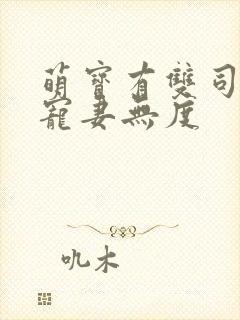 萌寶有雙司
寵妻無度
吼木